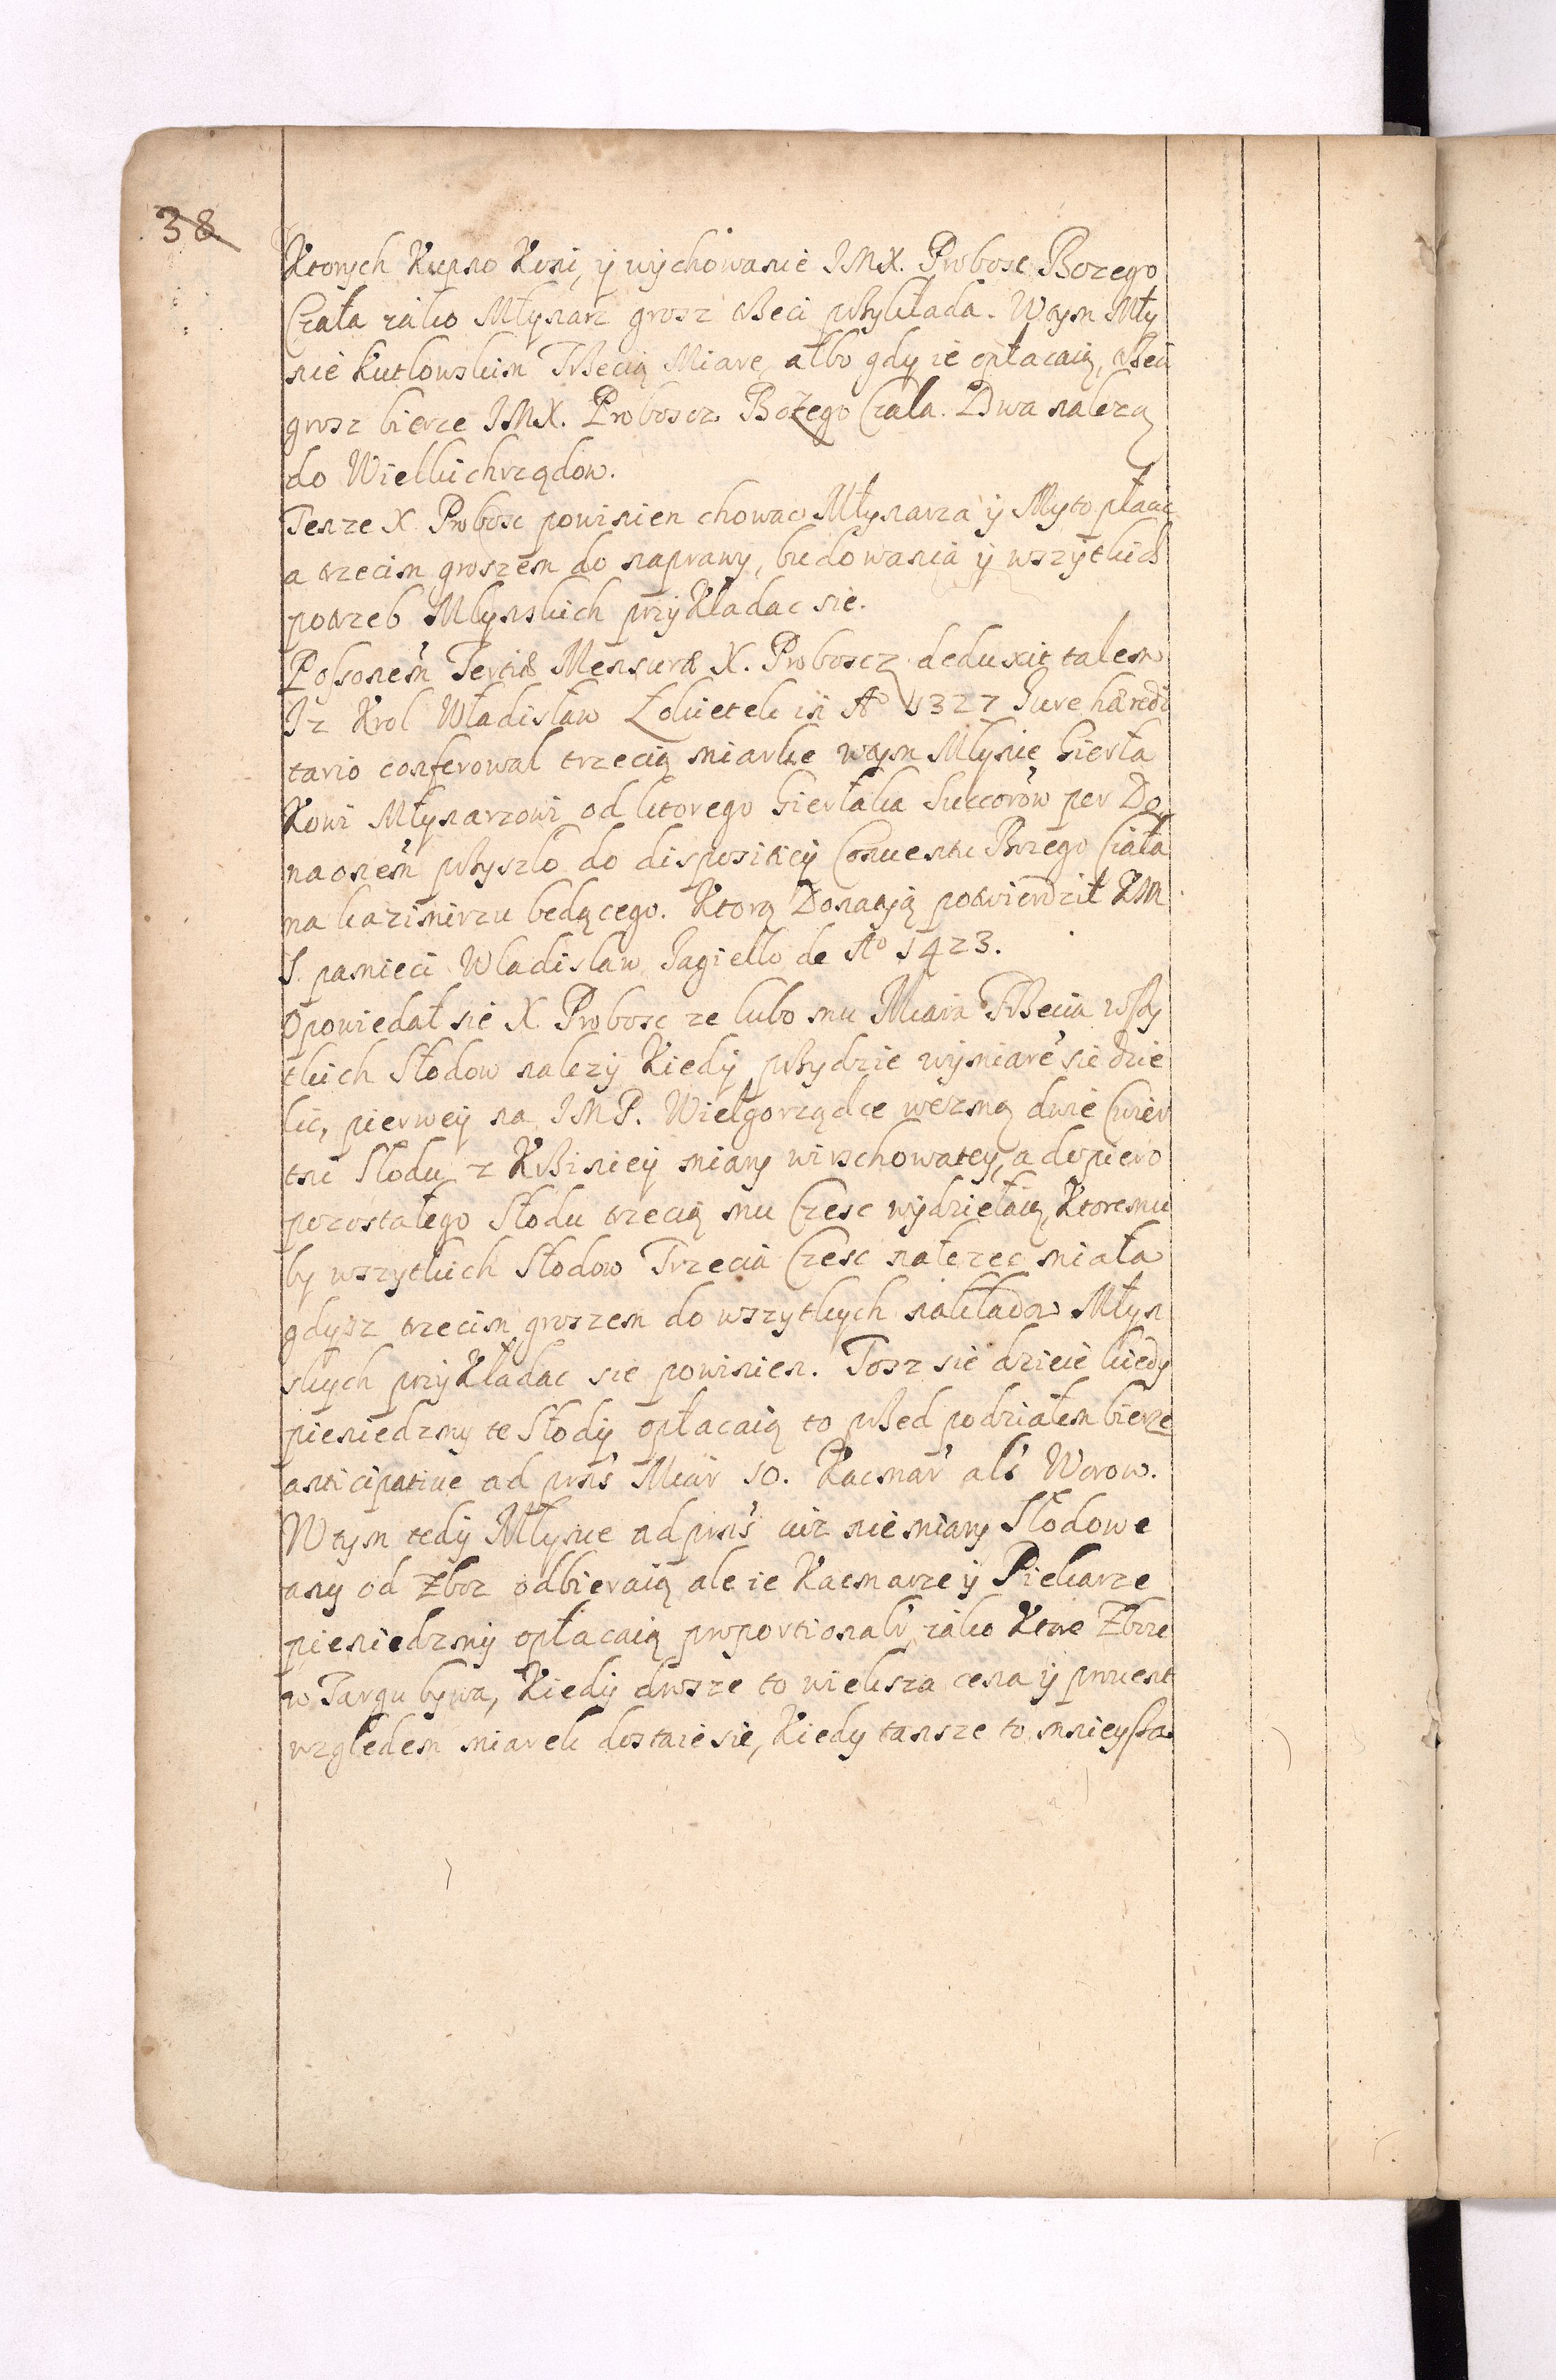 38
Ktorych Kupno Koni, ÿ wÿchowanie JMX. Probosc Bozego
Czała iako Młynarz grosz trzeci przykłada. Wtym Mły
nie kutlowskim Trzecią Miare, albo gdy ie opłacaią, trzeci
grosz bierze JMX. Proboscz Bożego Czala. Dwa nalezą
do Wielkichrządow.
Tenze X. Probosc powinien chowac Młynarza ÿ Myto płacic
a trzecim groszem do naprawy, budowania ÿ wszÿtkich
potrzeb Mlynskich przÿkładac sie.
Possonem Tertiæ Mensuræ X. Proboscz deduxit talem
Jz Krol Władisław Łokietek in Aº 1327 Jure hæredi
tario conferowal trzecią miarke wtym Mlynie Gierła
Kowi Młynarzowi od ktorego Gierłaka Succorow per Do
naonem przyszlo do dispositicÿ Conuentu Bozego Ciała
na kazimirzu będącego. Ktorą Donatją potwierdził KJM
S. pamieci Wladislaw Jagiello de Aº 1423.
Opowiedał sie X. Probosc ze lubo mu Miara Trzecia wszy
tkich Słodow nalezÿ Kiedÿ przydzie wÿmiare sie dzie
lic, pierweÿ na JMP. Wielgorządce wezmą dwie Cwier
tni Slodu z Krziniceÿ miary wirschowateÿ, a dopiero
pozostałego Słodu trzecią mu Czesc wÿdzielaią, Ktoremu
by wszytkich Słodow Trzecia Czesc nalezec miała
gdysz trzecim groszem do wszytkych nakładow Młyn
skych przÿkładac sie powinien. Tosz sie dzieie kiedy
pieniedzmy te Słodÿ opłacaią to przed podziałem bierze
anticipatiue ad prns Miar 10. Kacmar als Worow.
Wtym tedÿ Młynie ad prns iuz nie miary Słodowe
any od Zboz odbieraią ale ie Kacmarze ÿ Piekarze
pieniedzmÿ opłacaią proportionalr, iako Ktore Zboze
w Targu bywa, Kiedÿ drosze to wieksza cena ÿ prouent
względem miarek dostaie sie, Kiedy tansze to mnieysza